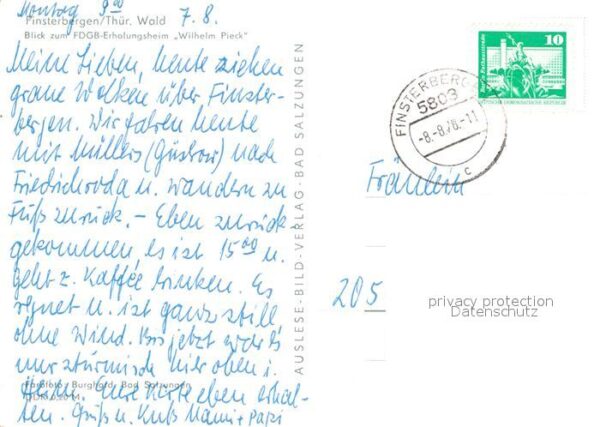 Montag 9⁰⁰ 7.8.
Finsterbergen/Thür. Wald
Blick zum FDGB-Erholungsheim „Wilhelm Pieck"
Meine Lieben, heute ziehen
graue Wolken über Finster-
bergen. Wir fahren heute
mit Müllers (Güstrow) nach
Friedrichroda u. wandern zu
Fuß zurück. – Eben zurück-
gekommen, es ist 15⁰⁰ u.
geht z. Kaffee trinken. Es
regnet u. ist ganz still
ohne Wind. Bis jetzt war's
nur stürmisch hier oben i.
Heim. Eure Karte eben erhal-
ten. Gruß u. Kuß Mami + Papi
Farbfoto: Burghard, Bad Salzungen
AUSLESE-BILD-VERLAG · BAD SALZUNGEN
10
DEUTSCHE DEMOKRATISCHE REPUBLIK
FINSTERBERGEN
5803
-8.-8.78.-11
c
Fräulein
205
privacy protection
Datenschutz